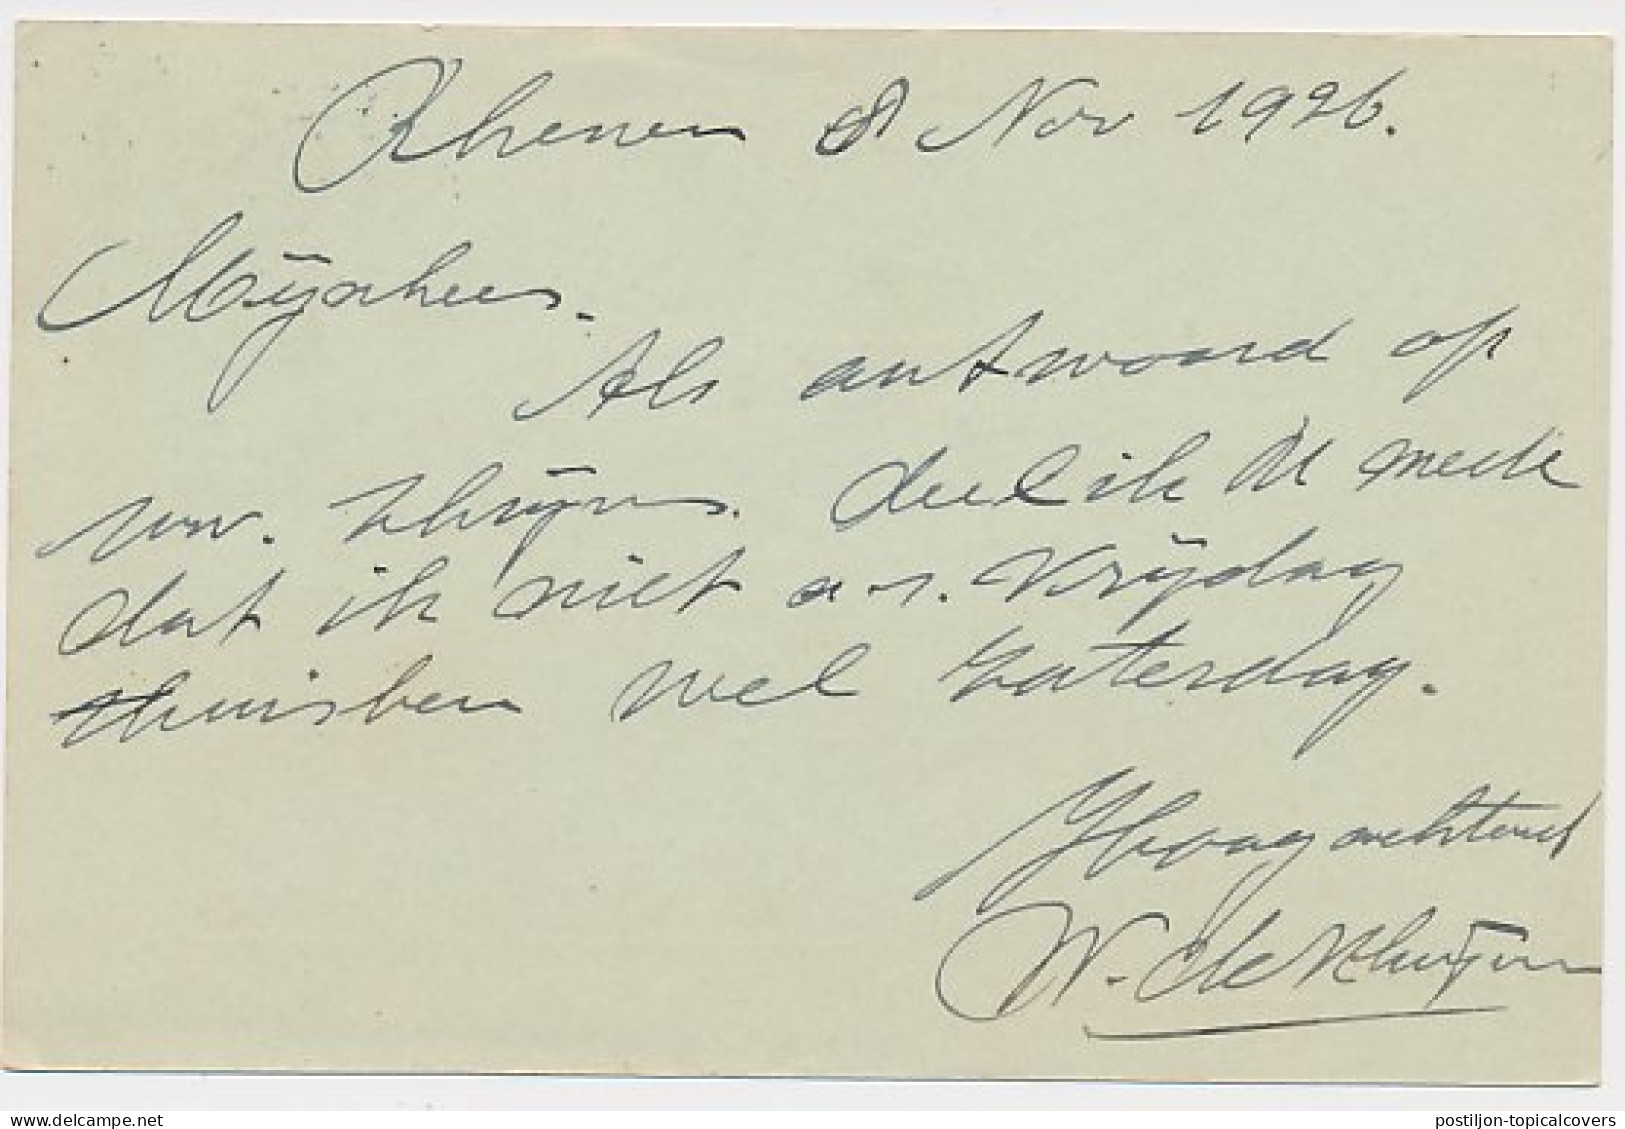 Rhenen 8 Nov 1926.
Mijnheer.
Als antwoord op
uw. schrijven. deel ik U mede
dat ik niet a.s. Vrijdag
thuisben wel Zaterdag.
Hoogachtend
W. de
postiljon-topicalcovers